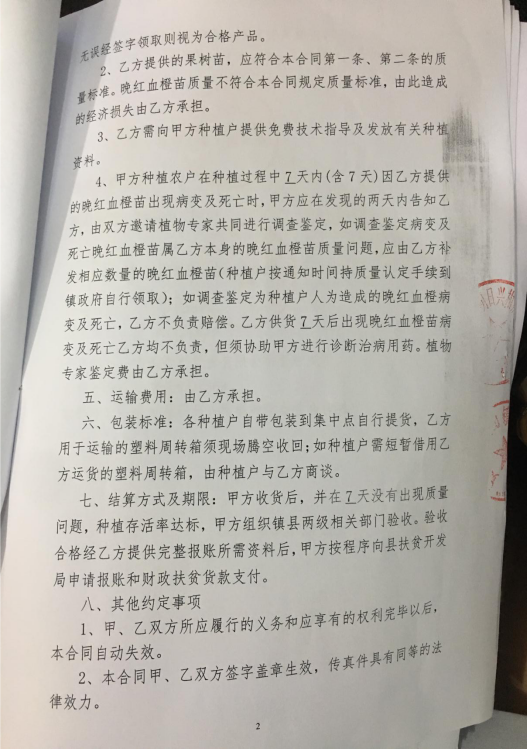 无误经签字领取则视为合格产品。
2、乙方提供的果树苗，应符合本合同第一条、第二条的质
量标准。晚红血橙苗质量不符合本合同规定质量标准，由此造成
的经济损失由乙方承担。
3、乙方需向甲方种植户提供免费技术指导及发放有关种植
资料。
4、甲方种植农户在种植过程中7天内(含7天)因乙方提供
的晚红血橙苗出现病变及死亡时,甲方应在发现的两天内告知乙
方，由双方邀请植物专家共同进行调查鉴定，如调查鉴定病变及
死亡晚红血橙苗属乙方本身的晚红血橙苗质量问题,应由乙方补
发相应数量的晚红血橙苗(种植户按通知时间持质量认定手续到
镇政府自行领取)；如调查鉴定为种植户人为造成的晚红血橙病
变及死亡，乙方不负责赔偿。乙方供货7天后出现晚红血橙苗病
变及死亡乙方均不负责，但须协助甲方进行诊断治病用药。植物
专家鉴定费由乙方承担。
五、运输费用：由乙方承担。
六、包装标准：各种植户自带包装到集中点自行提货，乙方
用于运输的塑料周转箱须现场腾空收回;如种植户需短暂借用乙
方运货的塑料周转箱，由种植户与乙方商谈。
七、结算方式及期限：甲方收货后，并在7天没有出现质量
问题，种植存活率达标，甲方组织镇县两级相关部门验收。验收
合格经乙方提供完整报账所需资料后,甲方按程序向县扶贫开发
局申请报账和财政扶贫货款支付。
八、其他约定事项
1、甲、乙双方所应履行的义务和应享有的权利完毕以后，
本合同自动失效。
2、本合同甲、乙双方签字盖章生效，传真件具有同等的法
律效力。
2